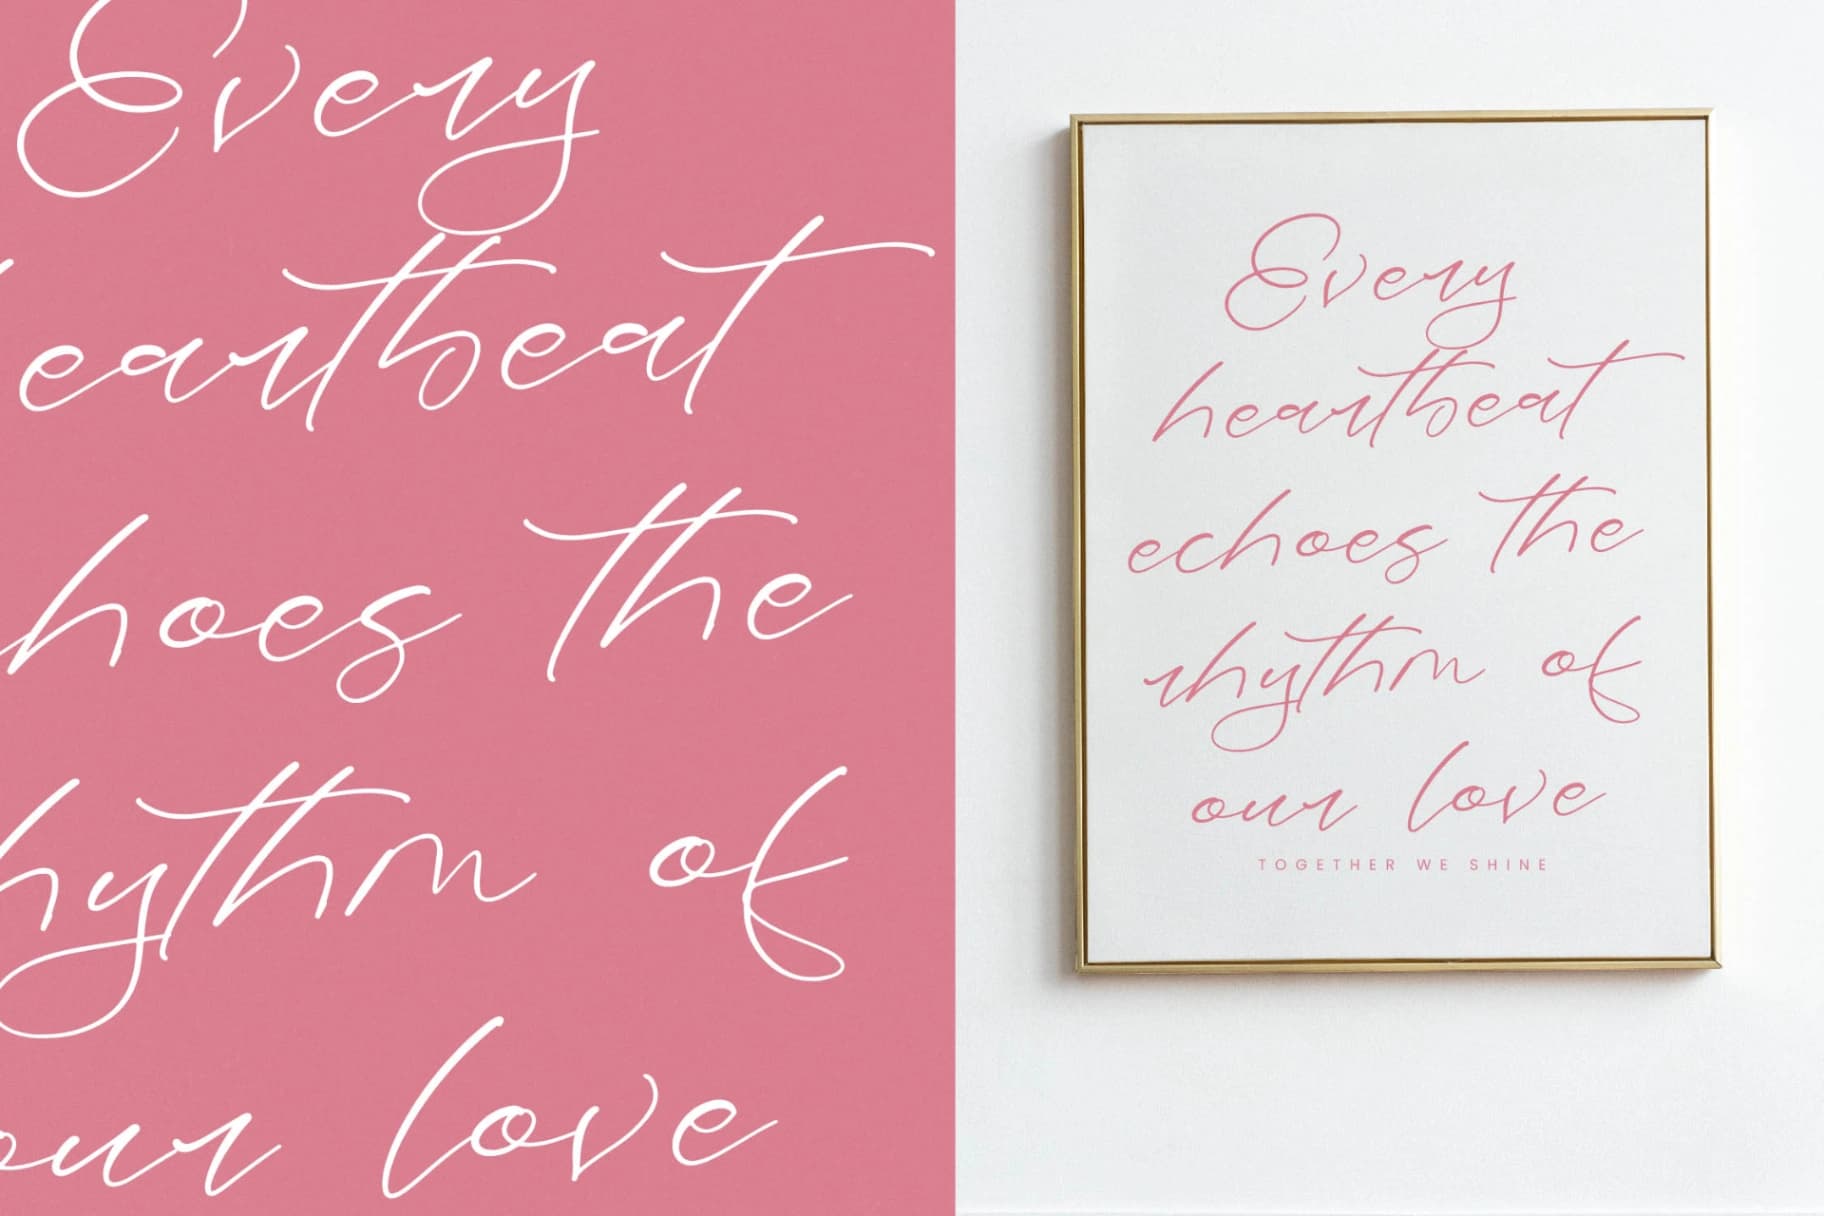 Every
eartbeat
hoes the
hythm of
our love
Every
heartbeat
echoes the
rhythm of
our love
TOGETHER WE SHINE